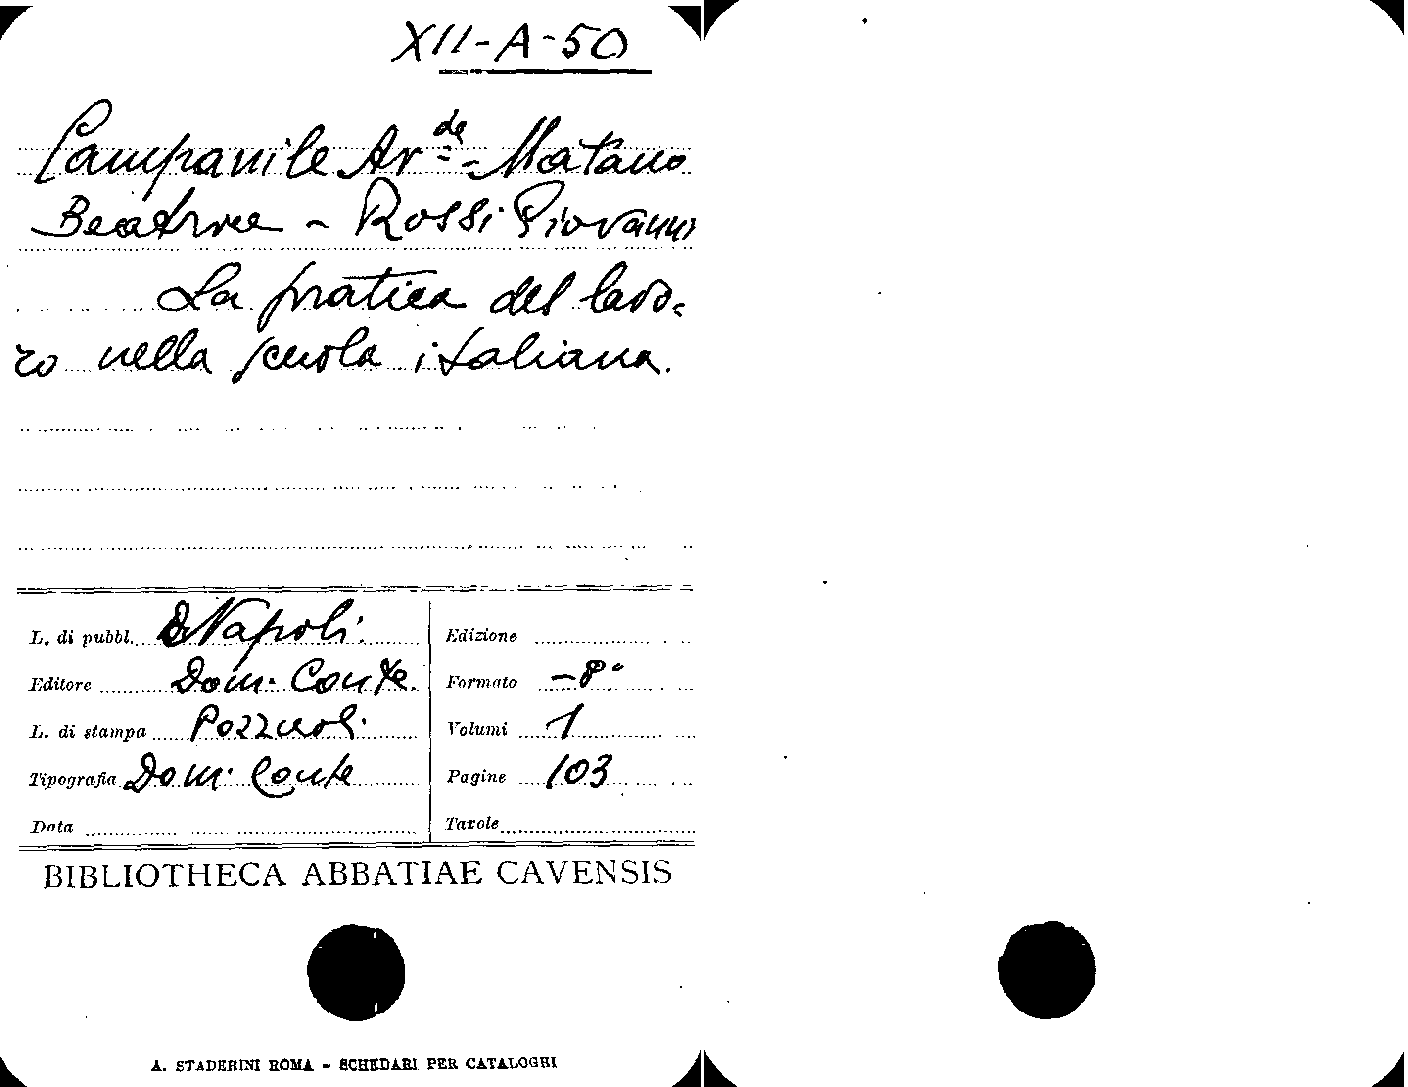 XII-A-50
Campanile Ar.de - Matano
Beatrice - Rossi Giovanni
La pratica del lavo-
ro nella scuola italiana.
L. di pubbl. Napoli.
Editore Dom. Conte.
L. di stampa Pozzuoli.
Tipografia Dom. Conte
Data
Edizione
Formato -8°
Volumi 1
Pagine 103
Tavole
BIBLIOTHECA ABBATIAE CAVENSIS
A. STADERINI ROMA - SCHEDARI PER CATALOGHI